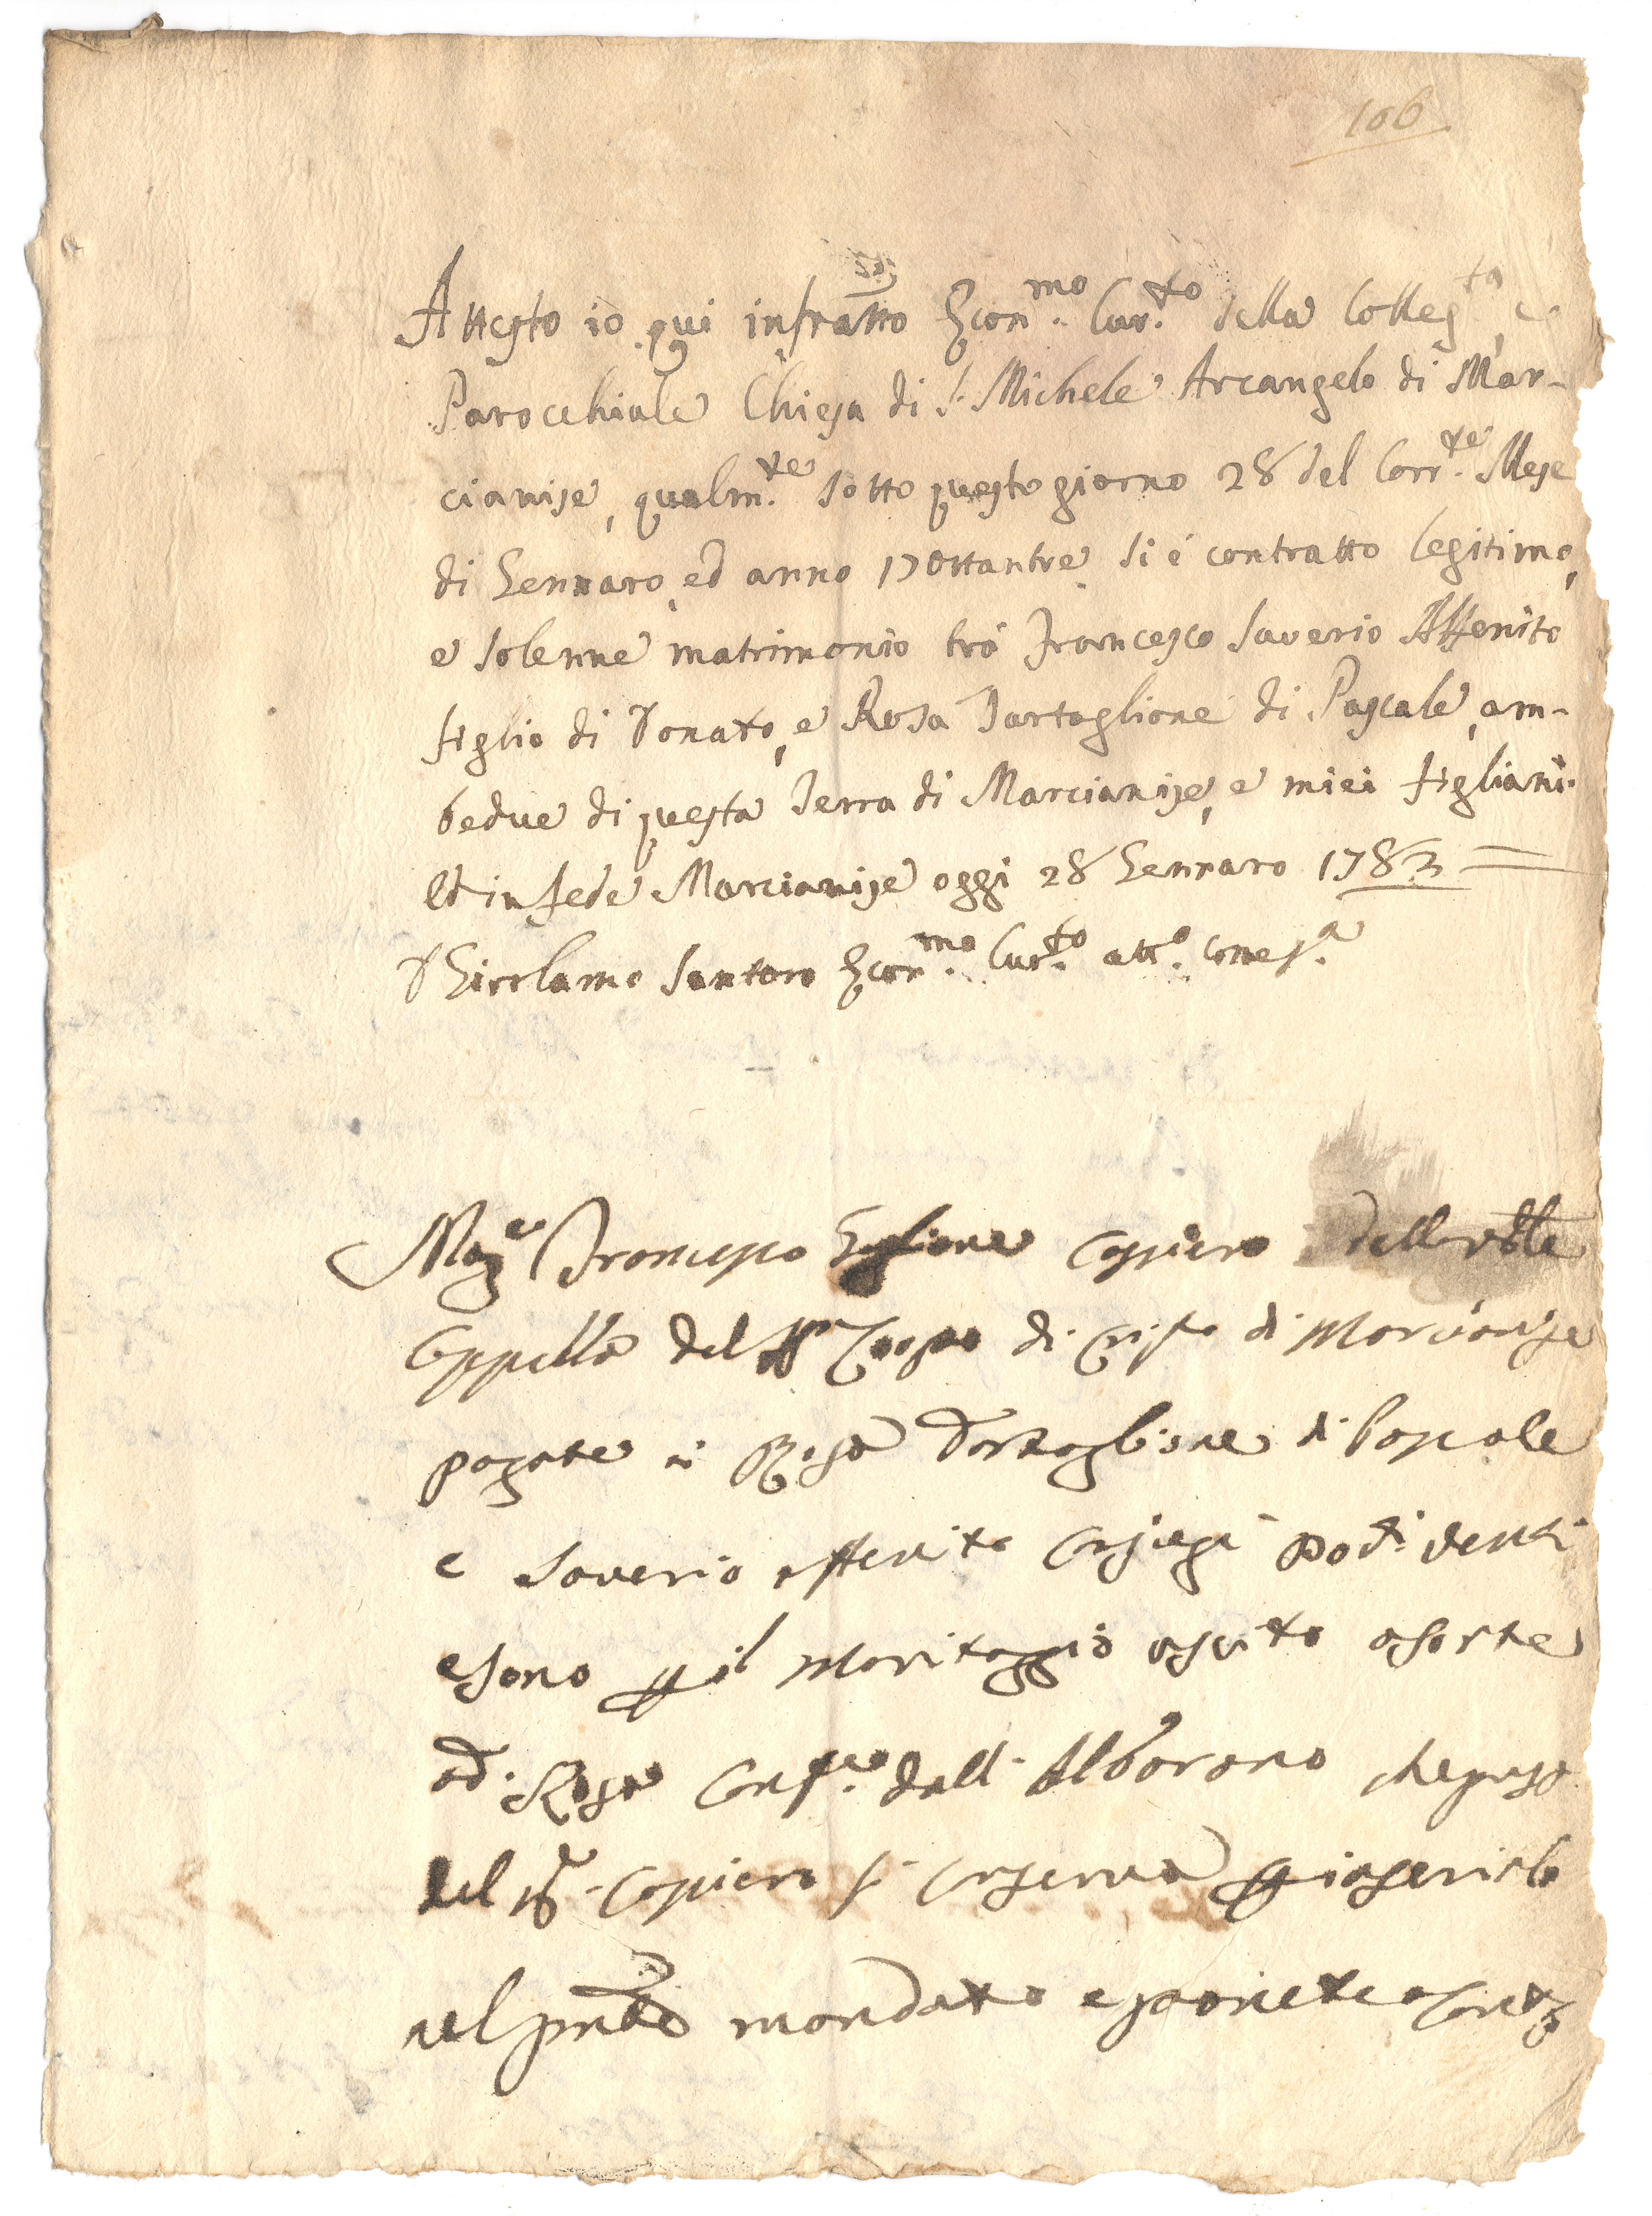 106
Attesto io qui infratto Econ.mo Cur.to della Colleg.ta, e
Parocchiale Chiesa di S. Michele Arcangelo di Mar-
cianise, qualm.te sotto questo giorno 28 del Corr.te Mese
di Gennaro, ed anno 17ottantre si é contratto legitimo,
e solenne matrimonio trá Francesco Saverio Affenito
figlio di Donato, e Rosa Tartaglione di Pascale, am-
bedue di questa Terra di Marcianise, e miei figliani.
Ed in fede Marcianise oggi 28 Gennaro 1783 =
D Girolamo Santoro Econ.mo Cur.to att.o come s.a
Mag.co Francesco casciero della
Cappella del SS Corpo di Cristo di Marcianise
pagate a Rosa Tartaglione di Pascale
e Saverio affenito Conjugi
e sono p il Maritaggio uscito a sorte
ad. Rosa dall' Alborano che presso
del casciero si conserva p inserirlo
nel mandato e ponete a